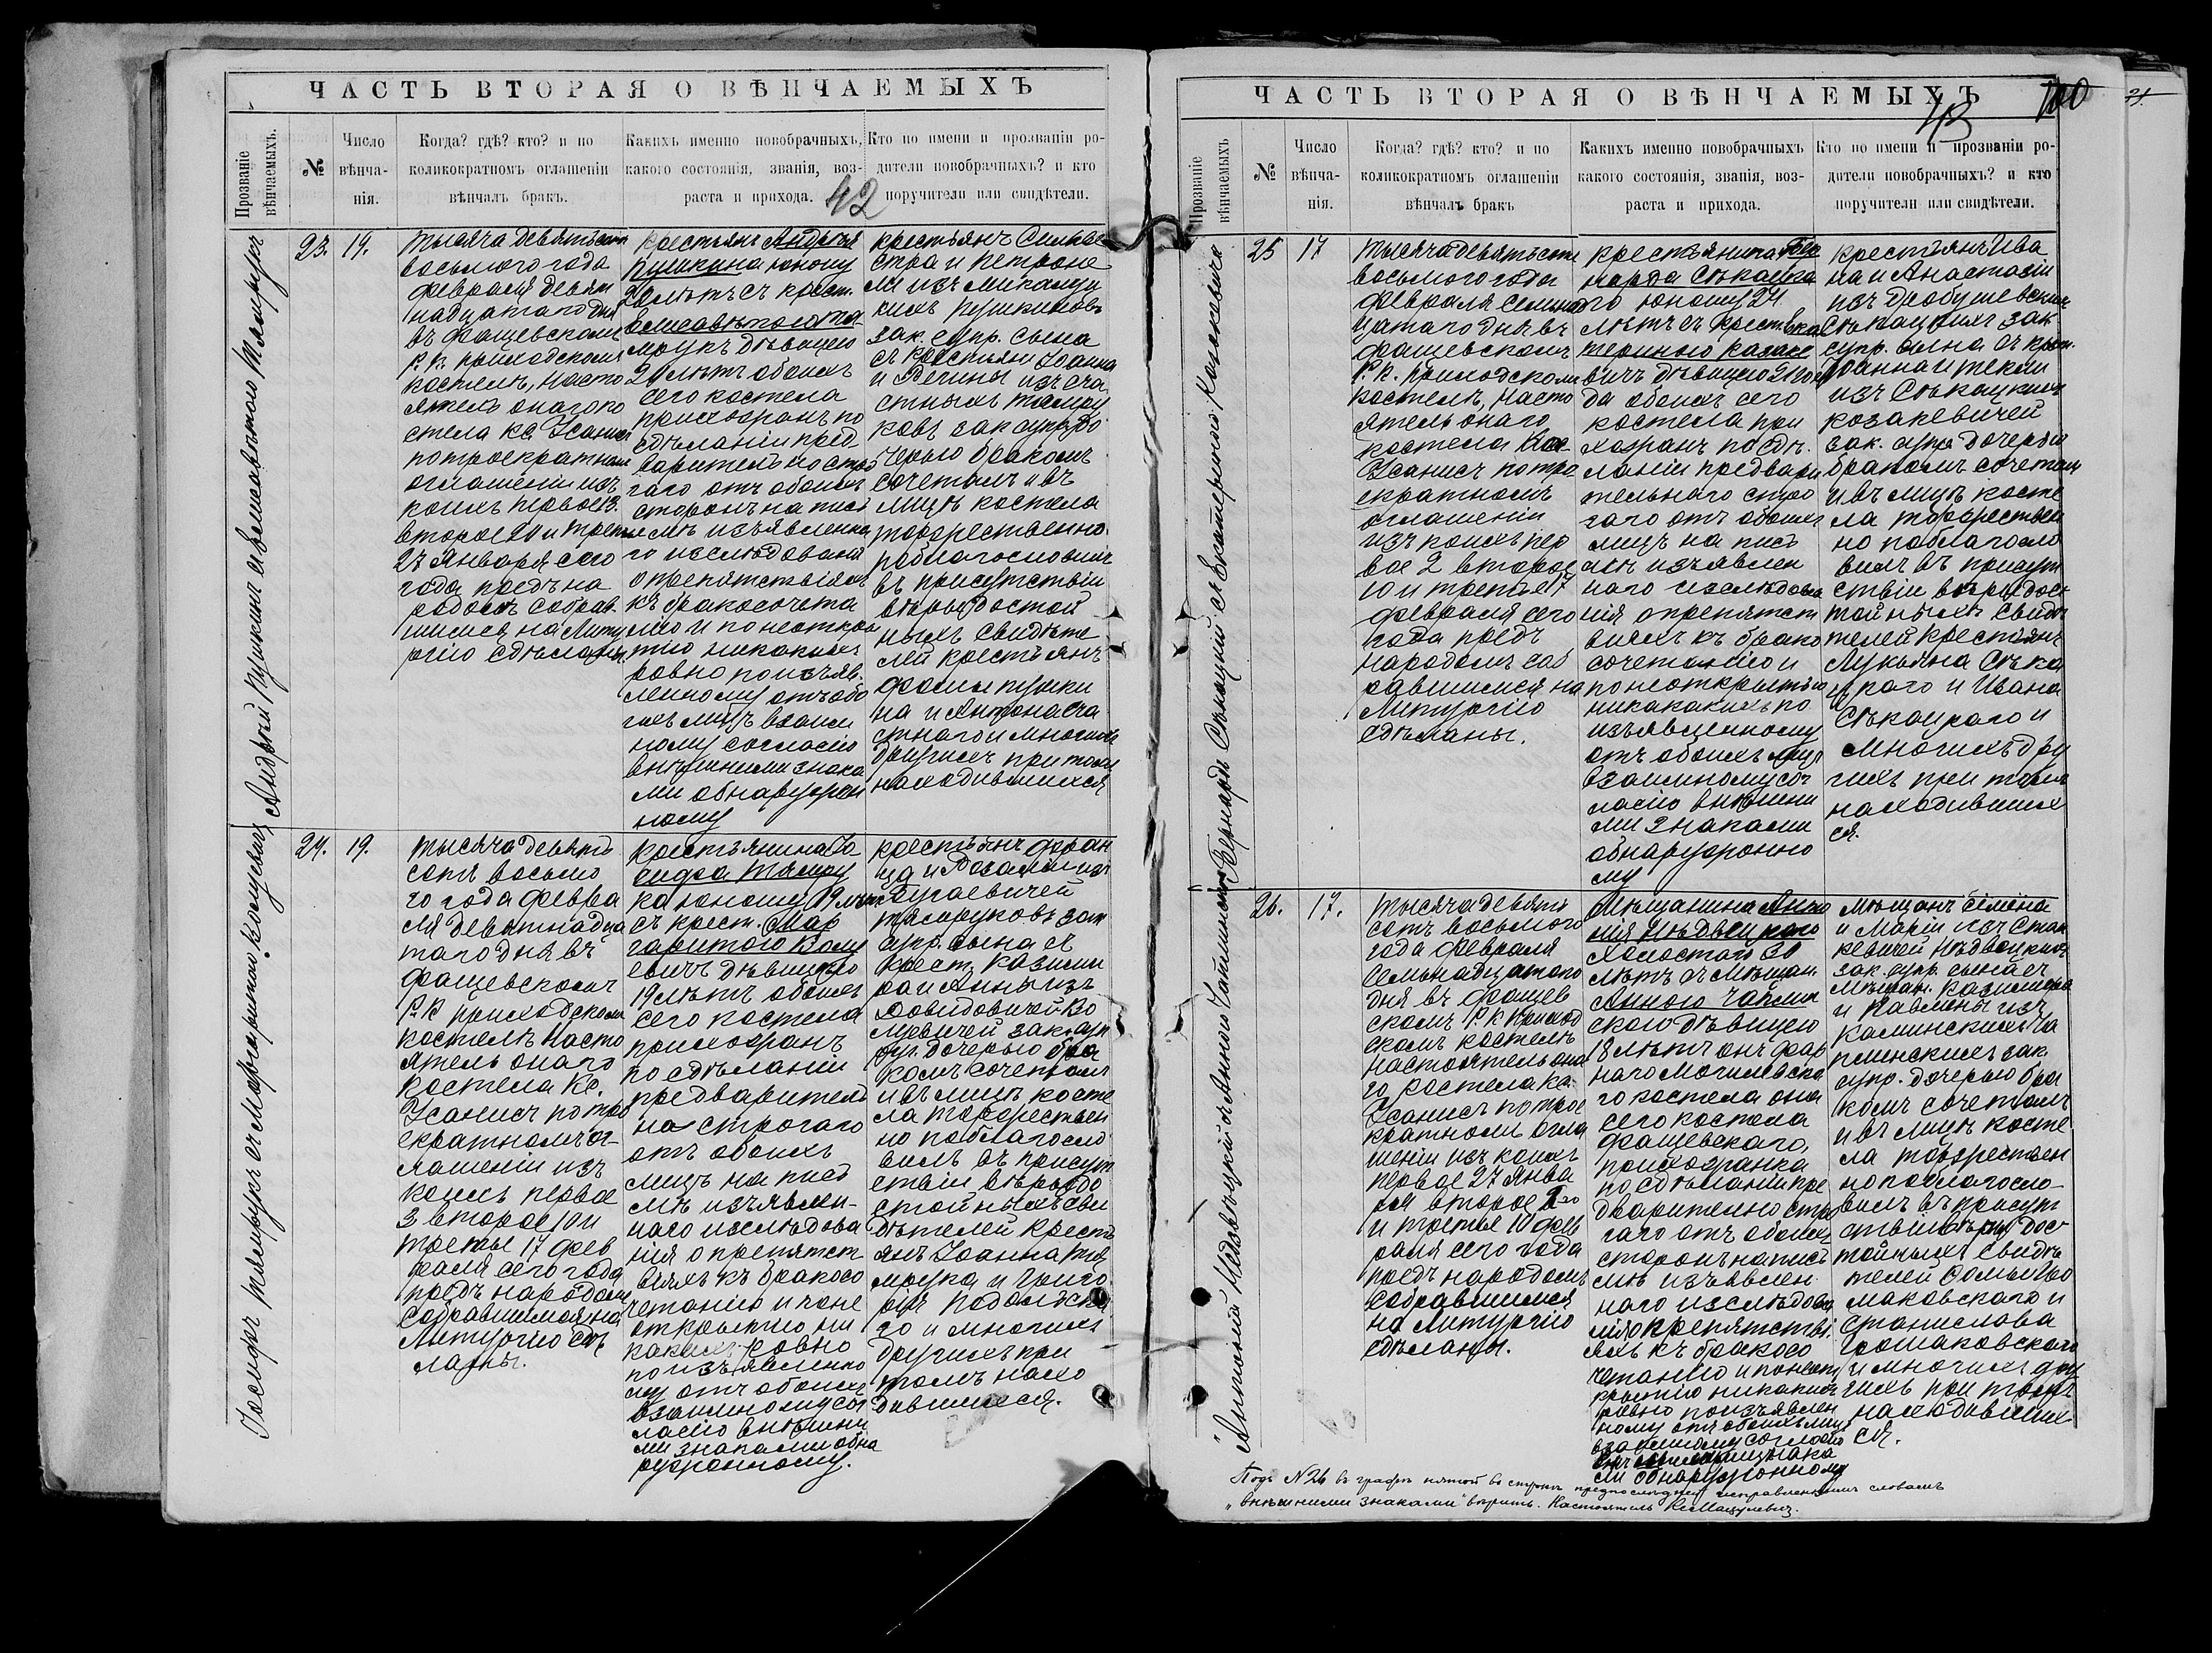 ЧАСТЬ ВТОРАЯ О ВѢНЧАЕМЫХЪ
Прозваніе вѣнчаемыхъ.
№
Число вѣнча-нія.
Когда? гдѣ? кто? и по
коликократномъ оглашеніи
вѣнчалъ бракъ.
Какихъ именно новобрачныхъ,
какого состоянія, званія, воз-
раста и прихода.
Кто по имени и прозваніи ро-
дители новобрачныхъ? и кто
поручители или свидѣтели.
42
23.
19.
Тысяча девятьсотъ
восьмого года
февраля девят
надцатаго дня
въ Фащевскомъ
Р. К. приходскомъ
костелѣ, Насто
ятель онаго ко
стела Кс.
потроекратномъ
оглашеніи изъ
коихъ первое 13.
второе 20 и третье
27 Января сего
года предъ на
родомъ собрав
шимся на Литу
ргію сдѣланы
крестьянъ Андрея
Пушкина юношу
лѣтъ съ крест.
Елисаветою Тя
мрукъ дѣвицею
20 лѣтъ обоихъ
сего костела
прихожанъ по
сдѣланіи пред
варительно стро
гаго отъ обоихъ
сторонъ на пись
мѣ изъявленна
го изслѣдованія
о препятствіяхъ
къ бракосочета
нію и по неоткры
тію никакихъ
ровно по изъяв.
ленному отъ обо
ихъ лицъ взаим
ному согласію
внѣшними знака
ми обнаружен
ному
крестьянъ Сильве
стра и Петроне
ли изъ
кихъ Пушкиновъ
зак. супр. сына
съ крестьян. Іоанна
и Регины изъ Сча
стныхъ Тямру
ковъ зак. супр. до
черью бракомъ
сочеталъ и въ
лицѣ костела
торжественно
поблагословилъ
въ присутствіи
вѣры достой
ныхъ свидѣте
лей крестьянъ
Фомы Пушки
на и Антона Сча
стнаго и многихъ
другихъ при томъ
находившихся
Андрей Пушкинъ съ Елисаветою Тямрукъ
24.
19.
Тысяча девять
сотъ восьмо
го года февра
ля девятнадца
таго дня въ
Фащевскомъ
Р. К. приходскомъ
костелѣ Насто
ятель онаго
костела Кс.
по трое
екратномъ ог-
лашеніи изъ
коихъ первое
3 второе 10 и
третье 17 фев
раля сего года
предъ народомъ
собравшимся на
Литургію сдѣ
ланы.
крестьянина Іо
сифа Тямру
ка юношу 19 лѣтъ
съ крест. Мар
гаритою
евичъ дѣвицею
19 лѣтъ обоихъ
сего костела
прихожанъ
по сдѣланіи
предваритель
но строгаго
отъ обоихъ
лицъ на пись
мѣ изъявлен-
наго изслѣдова
нія о препятст
віяхъ къ бракосо
четанію и по не
открытію ни
какихъ ровно
по изъявленно
му отъ обоихъ
взаимному сог
ласію внѣшни
ми знаками обна
руженному.
крестьянъ Фран
ца и Розаліи изъ
Тямруковъ зак.
супр. сына съ
крест. Казими
ра и Анны изъ
Довидовичей
зак.
супр. дочерью бра
комъ сочеталъ
и въ лицѣ косте
ла торжествен
но поблагосло
вилъ въ присут
ствіи вѣры до
стойныхъ сви
дѣтелей кресть
янъ Іоанна Тя
мрука и Григо
рія
го и многихъ
другихъ при
томъ нахо
дившихся.
ЧАСТЬ ВТОРАЯ О ВѢНЧАЕМЫХЪ
43
100
21.
Прозваніе вѣнчаемыхъ
№
Число вѣнча-нія.
Когда? гдѣ? кто? и по
коликократномъ оглашеніи
вѣнчалъ бракъ
Какихъ именно новобрачныхъ
какого состоянія, званія, воз-
раста и прихода.
Кто по имени и прозваніи ро-
дители новобрачныхъ? и кто
поручители или свидѣтели.
25
17
Тысяча девятьсотъ
восьмого года
февраля семнад
цатаго дня въ
Фащевскомъ
Р. К. приходскомъ
костелѣ, Насто
ятель онаго
костела Ксе.
по трое
екратномъ
оглашеніи
изъ коихъ пер
вое 2 второе
10 и третье 17
февраля сего
года предъ
народомъ соб
равшимся на
Литургію
сдѣланы.
крестьянина Бер
нарда Сѣкацка
го юношу 24
лѣтъ съ крест. Ека
териною Казаке
вичъ дѣвицею 21 го
да обоихъ сего
костела при
хожанъ по сдѣ.
ланіи предвари
тельнаго стро
гаго отъ обоихъ
лицъ на пись
мѣ изъявлен
наго изслѣдова
нія о препятст
віяхъ къ брако
сочетанію и
по неоткрытію
никакихъ по
изъявленному
отъ обоихъ лицъ
взаимному сог
ласію внѣшни
ми знаками
обнаруженно
му
крестьянъ Ива
на и Анастасіи
изъ
Сѣкацкихъ зак
супр. сына съ крест.
Іоанна и Теклі
изъ Сѣкацкихъ
Козакевичей
зак. супр. дочерью
бракомъ сочеталъ
и въ лицѣ косте
ла торжествен
но поблагосло
вилъ въ присут
ствіи вѣры дос
тойныхъ свидѣ
телей крестьянъ
Лукьяна Сѣка
цкаго и Ивана
Сѣкацкаго и
многихъ дру
гихъ при томъ
находивших
ся.
26.
17.
Тысяча девять
сотъ восьмого
года февраля
семнадцатаго
дня въ Фащев
скомъ Р. К. приход
скомъ костелѣ
настоятель она
го костела Кс.
по трое
кратномъ огла
шеніи изъ коихъ
первое 27 Янва
ря второе
и третье 10 фев
раля сего года
предъ народомъ
собравшимся
на Литургію
сдѣланы.
Мѣщанина Анто
нія Мѣдвецкаго
холостаго 30
лѣтъ съ мѣщан.
Анною Чаплин
скою дѣвицею
18 лѣтъ онъ
Могилевска
го костела она
сего костела
Фащевскаго,
прихожанка
по сдѣланіи пре
дварительно стро
гаго отъ обоихъ
сторонъ на пись
мѣ изъявлен
наго изслѣдова
нія о препятстві.
яхъ къ бракосо
четанію и по неот
крытію никакихъ
ровно по изъявлен
ному отъ обоихъ лицъ
взаимному согласію
внѣшними знака
ми обнаруженному
мѣщанъ Семена
и Маріи изъ Стан
кевичей Мѣдвецкихъ
зак. супр. сына съ
мѣщан. Казимира
и
Калинскихъ Ча
плинскихъ зак.
супр. дочерью бра
комъ сочеталъ
и въ лицѣ косте
ла торжествен
но поблагосло-
вилъ въ присут
ствіи вѣры дос-
тойныхъ свидѣ
телей
маковскаго и
Станислава
и многихъ дру
гихъ при томъ
находивших-
ся.
Подъ N 26 въ графѣ пятой въ строкѣ предпослѣдней исправленнымъ словамъ
„внѣшними знаками" вѣрить. Настоятель Кс.